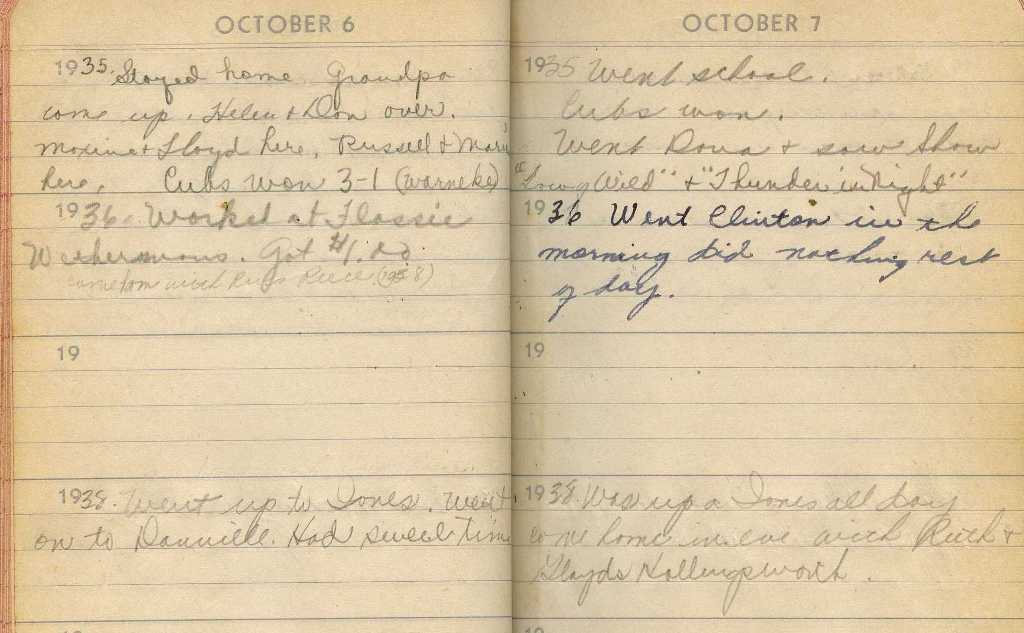 OCTOBER 6
1935. Stayed home. Grandpa
come up. Helen + Don over.
Maxine + Lloyd here. Russell + Marie
here. Cubs won 3-1 (Warneke)
1936. Worked at Flossie
Got $1.
come home with
(1938)
19
1938. Went up to Iones. Went
on to Danville. Had sweet time
OCTOBER 7
1935 Went school.
Cubs won.
Went Dana + saw show
"Going Wild" + "Thunder in Night"
1936 Went Clinton in the
morning did nothing rest
of day.
19
1938. Was up a Iones all day
come home in eve with Ruth +
Lloyds Hollingsworth.
19
19